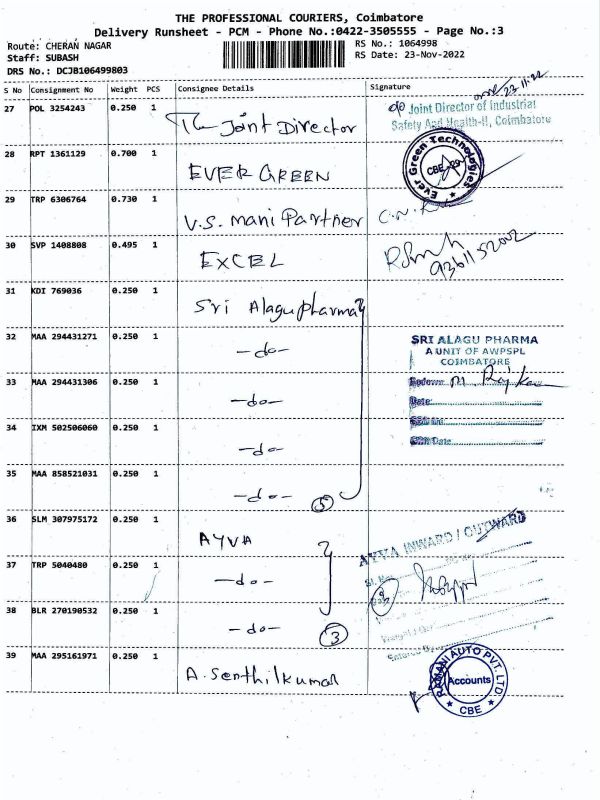 THE PROFESSIONAL COURIERS, Coimbatore
Delivery Runsheet - PCM - Phone No.:0422-3505555 - Page No.:3
Route: CHERAN NAGAR RS No.: 1064998
Staff: SUBASH RS Date: 23-Nov-2022
DRS No.: DCJB106499803
S No Consignment No Weight PCS Consignee Details Signature
23.11.22
27 POL 3254243 0.250 1 The Joint Director Joint Director of Industrial
Safety And Health-II, Coimbatore
28 RPT 1361129 0.700 1 EVER GREEN Ever Green Technologies CBE - 29
29 TRP 6306764 0.730 1 V.S. Mani Partner
30 SVP 1408808 0.495 1 EXCEL
31 KDI 769036 0.250 1 Sri Alagu Pharma
32 MAA 294431271 0.250 1 -do- SRI ALAGU PHARMA
A UNIT OF AWPSPL
COIMBATORE
33 MAA 294431306 0.250 1 -do-
Date
34 IXM 502506060 0.250 1 -do-
35 MAA 858521031 0.250 1 -do- 5
36 SLM 307975172 0.250 1 AYVA AYVA INWARD / OUTWARD
37 TRP 5040480 0.250 1 -do-
38 BLR 270190532 0.250 1 -do- 3
39 MAA 295161971 0.250 1 A. Senthilkumar RAMANI AUTO PVT. LTD. Accounts CBE